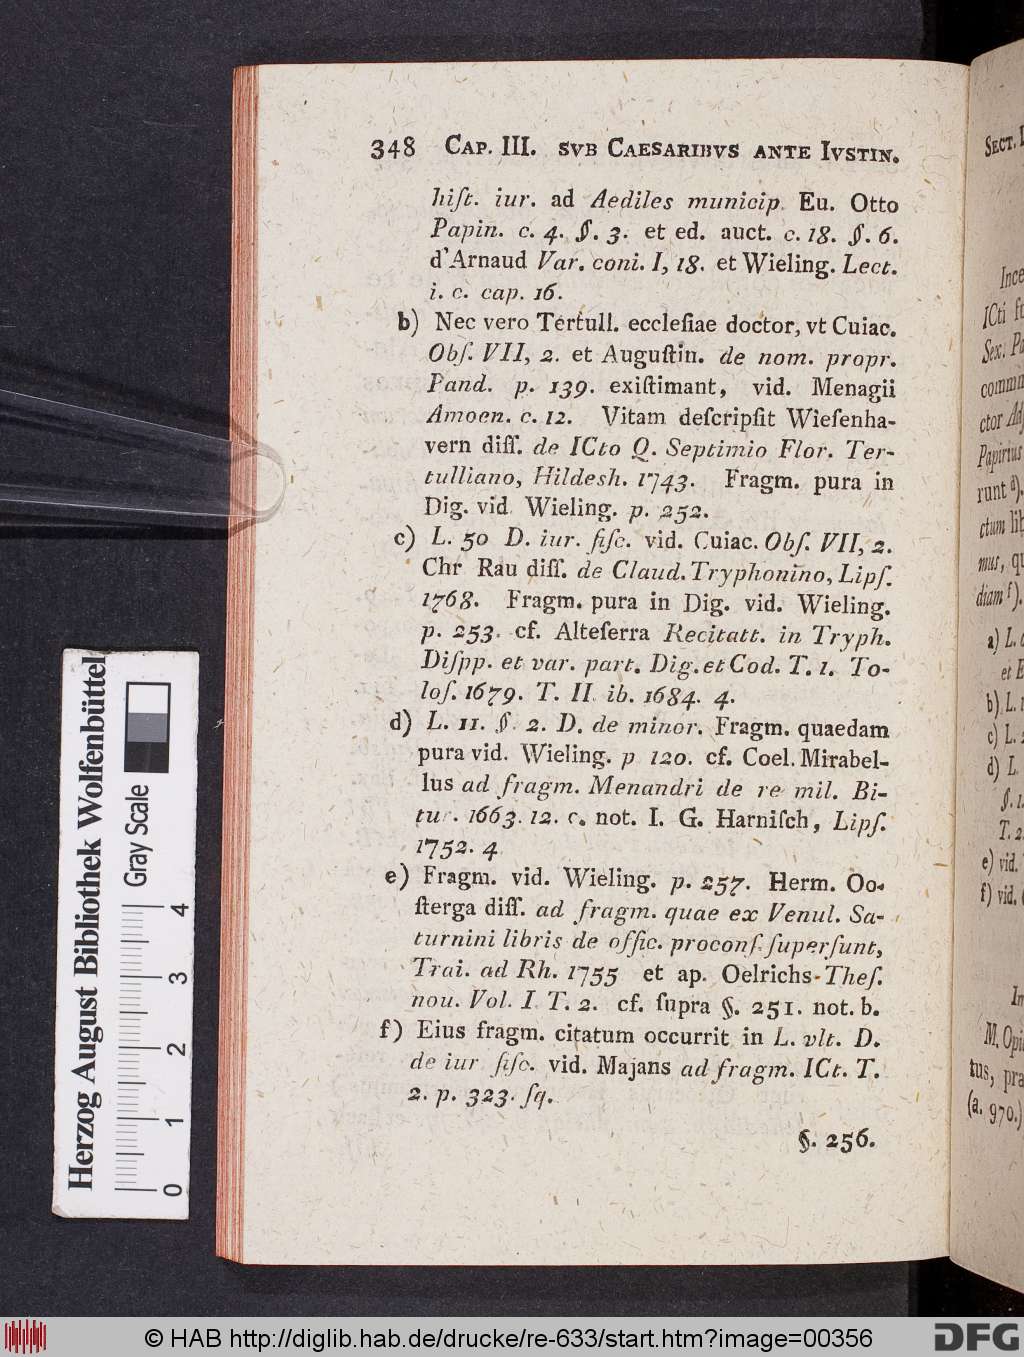 348 CAP. III. SVB CAESARIBVS ANTE IVSTIN.
hiſt. iur. ad Aediles municip. Eu. Otto
Papin. c. 4. §. 3. et ed. auct. c. 18. §. 6.
d'Arnaud Var. coni. I, 18. et Wieling. Lect.
i. c. cap. 16.
b) Nec vero Tertull. eccleſiae doctor, vt Cuiac.
Obſ. VII, 2. et Auguſtin. de nom. propr.
Pand. p. 139. exiſtimant, vid. Menagii
Amoen. c. 12. Vitam deſcripſit Wieſenha-
vern diſſ. de ICto Q. Septimio Flor. Ter-
tulliano, Hildesh. 1743. Fragm. pura in
Dig. vid Wieling. p. 252.
c) L. 50 D. iur. fiſc. vid. Cuiac. Obſ. VII, 2.
Chr Rau diſſ. de Claud. Tryphonino, Lipſ.
1768. Fragm. pura in Dig. vid. Wieling.
p. 253. cf. Alteſerra Recitatt. in Tryph.
Diſpp. et var. part. Dig. et Cod. T. 1. To-
loſ. 1679. T. II ib. 1684. 4.
d) L. 11. §. 2. D. de minor. Fragm. quaedam
pura vid. Wieling. p 120. cf. Coel. Mirabel-
lus ad fragm. Menandri de re mil. Bi-
tur. 1663. 12. c. not. I. G. Harniſch, Lipſ.
1752. 4
e) Fragm. vid. Wieling. p. 257. Herm. Oo-
ſterga diſſ. ad fragm. quae ex Venul. Sa-
turnini libris de offic. proconſ. ſuperſunt,
Trai. ad Rh. 1755 et ap. Oelrichs Theſ.
nou. Vol. I T. 2. cf. ſupra §. 251. not. b.
f) Eius fragm. citatum occurrit in L. vlt. D.
de iur fiſc. vid. Majans ad fragm. ICt. T.
2. p. 323. ſq.
§. 256.
SECT.
Ince
ICti
Sex. Pa
comm
ctor Adſ
Papirius
runt d).
ctum lib
mus, qu
diam f).
a) L.
et E
b) L.
c) L.
d) L.
§. 1.
T. 2
e) vid.
f) vid.
In
M. Opi
tus, pra
(a. 970.)
Herzog August Bibliothek Wolfenbüttel
Gray Scale
0 1 2 3 4
© HAB http://diglib.hab.de/drucke/re-633/start.htm?image=00356
DFG